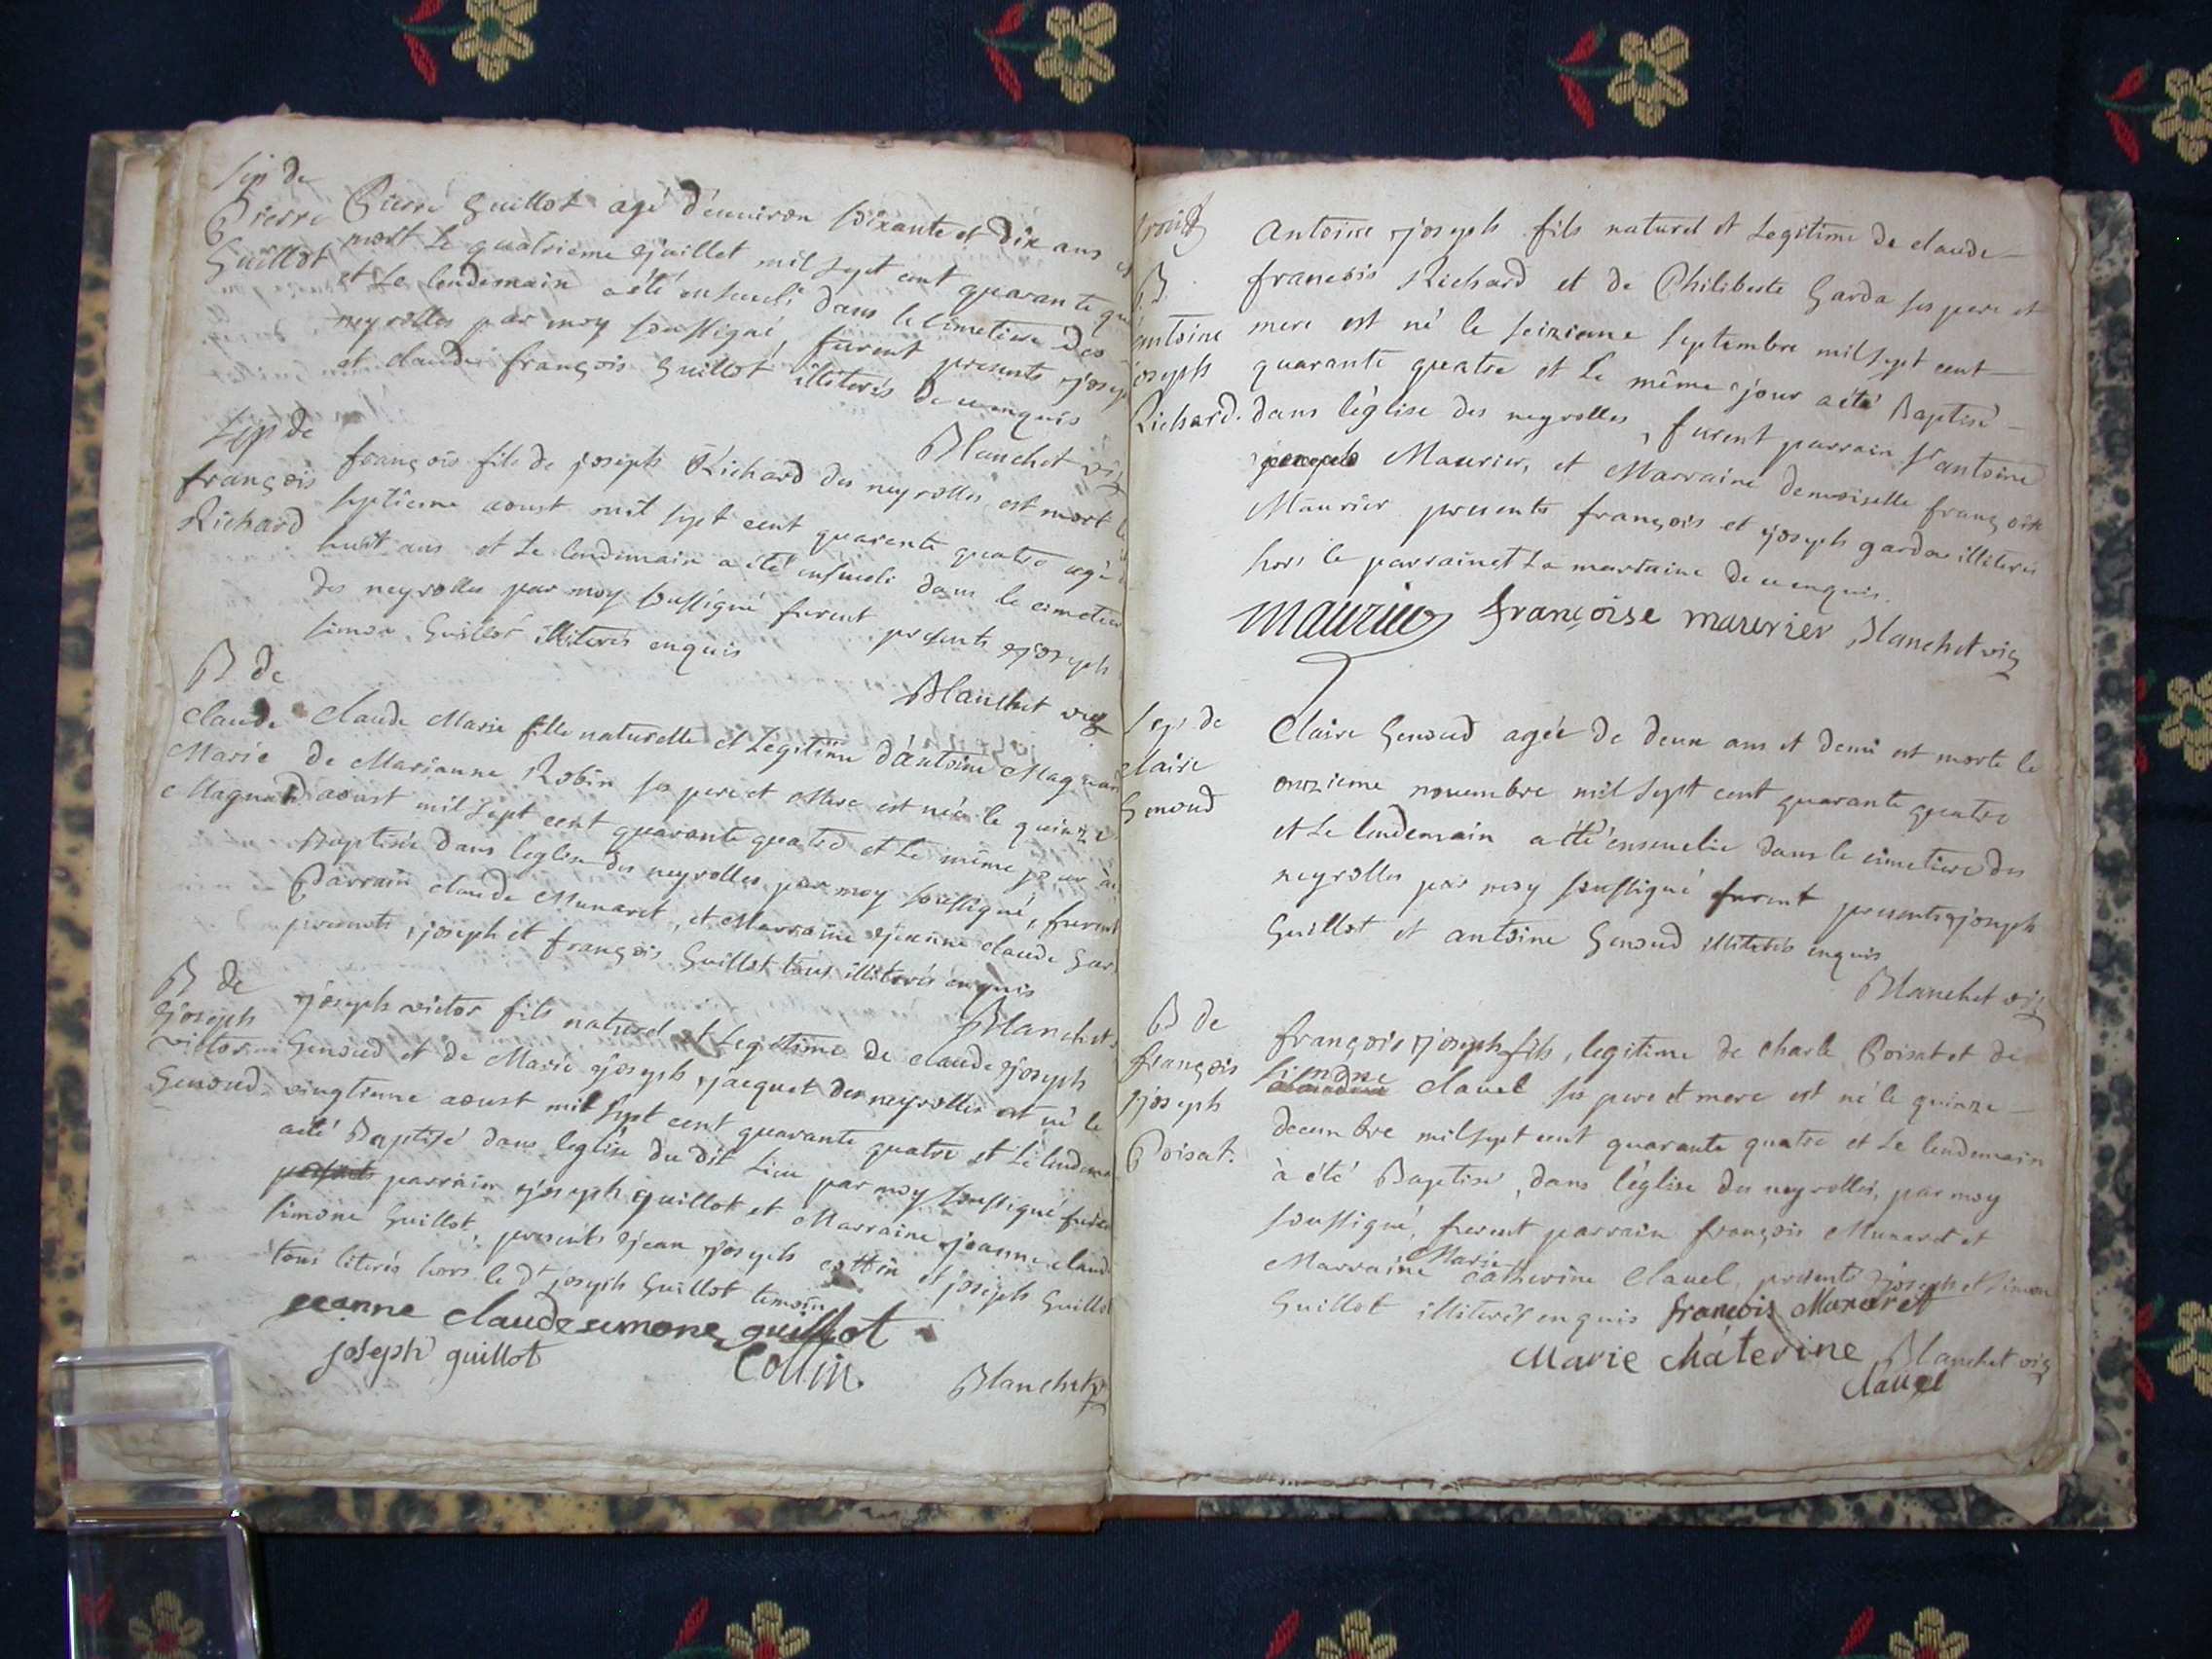 Sep de
Pierre
Guillot
Pierre Guillot agé d'environ soixante et dix ans
mort Le quatrieme juillet mil sept cent quarante
et Le lendemain a été enseveli dans le cimetiere des
neyrolles par moy soussigné, furent presents
et claude françois Guillot illiterés de ce enquis
Blanchet vic
Sep de
françois
Richard
françois fils de joseph Richard des neyrolles est mort le
septieme aoust mil sept cent quarente quatre agé
huit ans et Le lendemain a été enseveli dans le
des neyrolles par moy soussigné furent presents joseph
simon Guillot illiterés enquis
Blanchet vic
B de
claude
Marie
Magnard
claude Marie fille naturelle et Legitime d'antoine
de Marianne Robin ses pere et Mere est née le quinze
aoust mil sept cent quarante quatre et Le même jour
Baptisée dans leglise des neyrolles par moy soussigné, furent
Parrain claude Munaret, et Marraine jeanne claude
presents joseph et françois Guillot tous illiterés enquis
Blanchet
B de
joseph
victor
Genoud
joseph victor fils naturel et Legitime de claude joseph
Genoud et de Marie joseph jacquet des neyrolles est né le
vingtieme aoust mil sept cent quarante quatre et Le
aété Baptisé dans leglise du dit Lieu par moy soussigné
parrain joseph guillot et Marraine jeanne
simone Guillot, presents jean joseph cottin et joseph
tous literés hors le dt joseph Guillot temoin
jeanne claude simone guillot
joseph guillot
Collin
Blanchet
B
antoine
joseph
Richard.
Antoine joseph fils naturel et Legitime de claude
francois Richard et de Philiberte Garda ses pere et
mere est né le seizieme septembre mil sept cent
quarante quatre et Le même jour a été Baptisé
dans l'église des neyrolles, furent parrain Sr antoine
Maurier, et Marraine demoiselle françoise
Maurier presents françois et joseph garda illiterés
hors le parrain et La marraine de ce enquis.
Maurier françoise maurier Blanchet vic
Sep de
claire
Genoud
Claire Genoud agée de deux ans et demi est morte le
onzieme novembre mil sept cent quarante quatre
et Le lendemain a été ensevelie dans le cimetiere des
neyrolles par moy soussigné furent presents joseph
Guillot et antoine Genoud illiterés enquis
Blanchet vic
B de
françois
joseph
Poisat.
françois joseph fils, legitime de charle Poisat et de
simone clauel ses pere et mere est né le quinze
decembre mil sept cent quarante quatre et Le lendemain
à été Baptisé, dans l'église des neyrolles, par moy
soussigné, furent parrain françois Munaret et
Marraine Marie catherine Clauel, presents joseph et simon
Guillot illiterés enquis francois Munaret
Marie Chaterine Blanchet vic
clauel